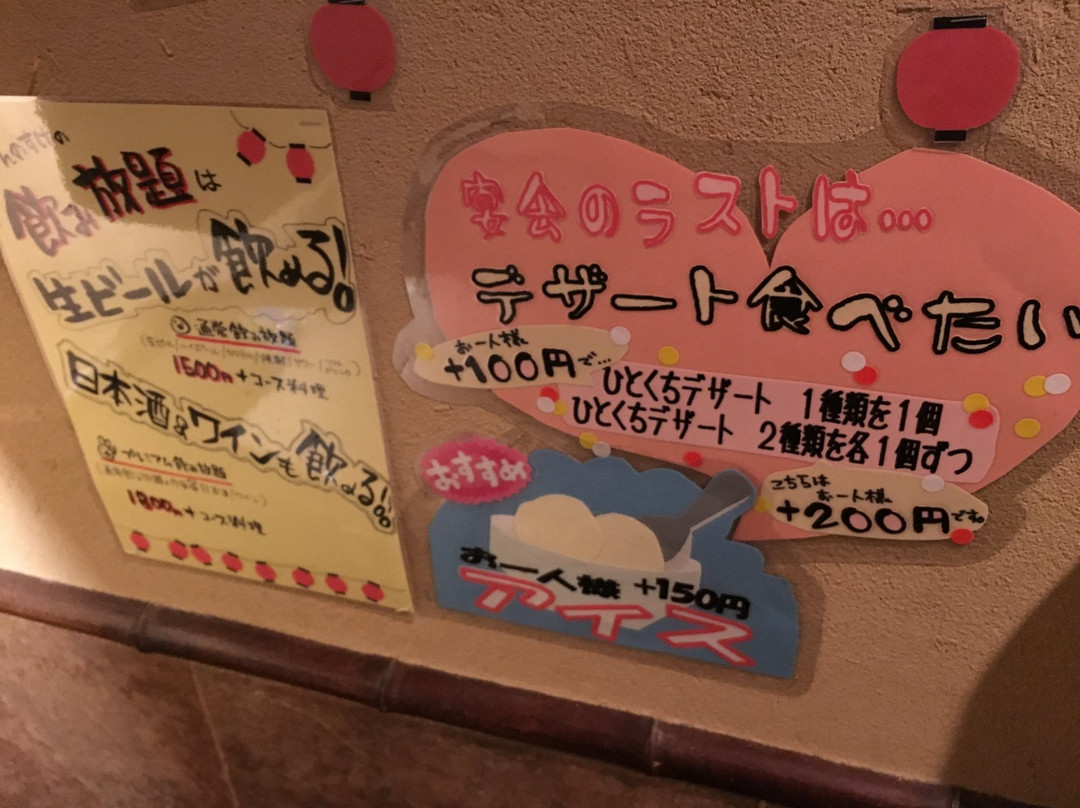 飲み放題は
生ビールが飲める!
通常飲み放題
1500円+コース料理
日本酒&ワインも飲める!!
プレミアム飲み放題
1800円+コース料理
宴会のラストは...
デザート食べたい
お一人様
+100円で...
ひとくちデザート 1種類を1個
ひとくちデザート 2種類を各1個ずつ
こちらは
お一人様
+200円です。
おすすめ
お一人様 +150円
アイス